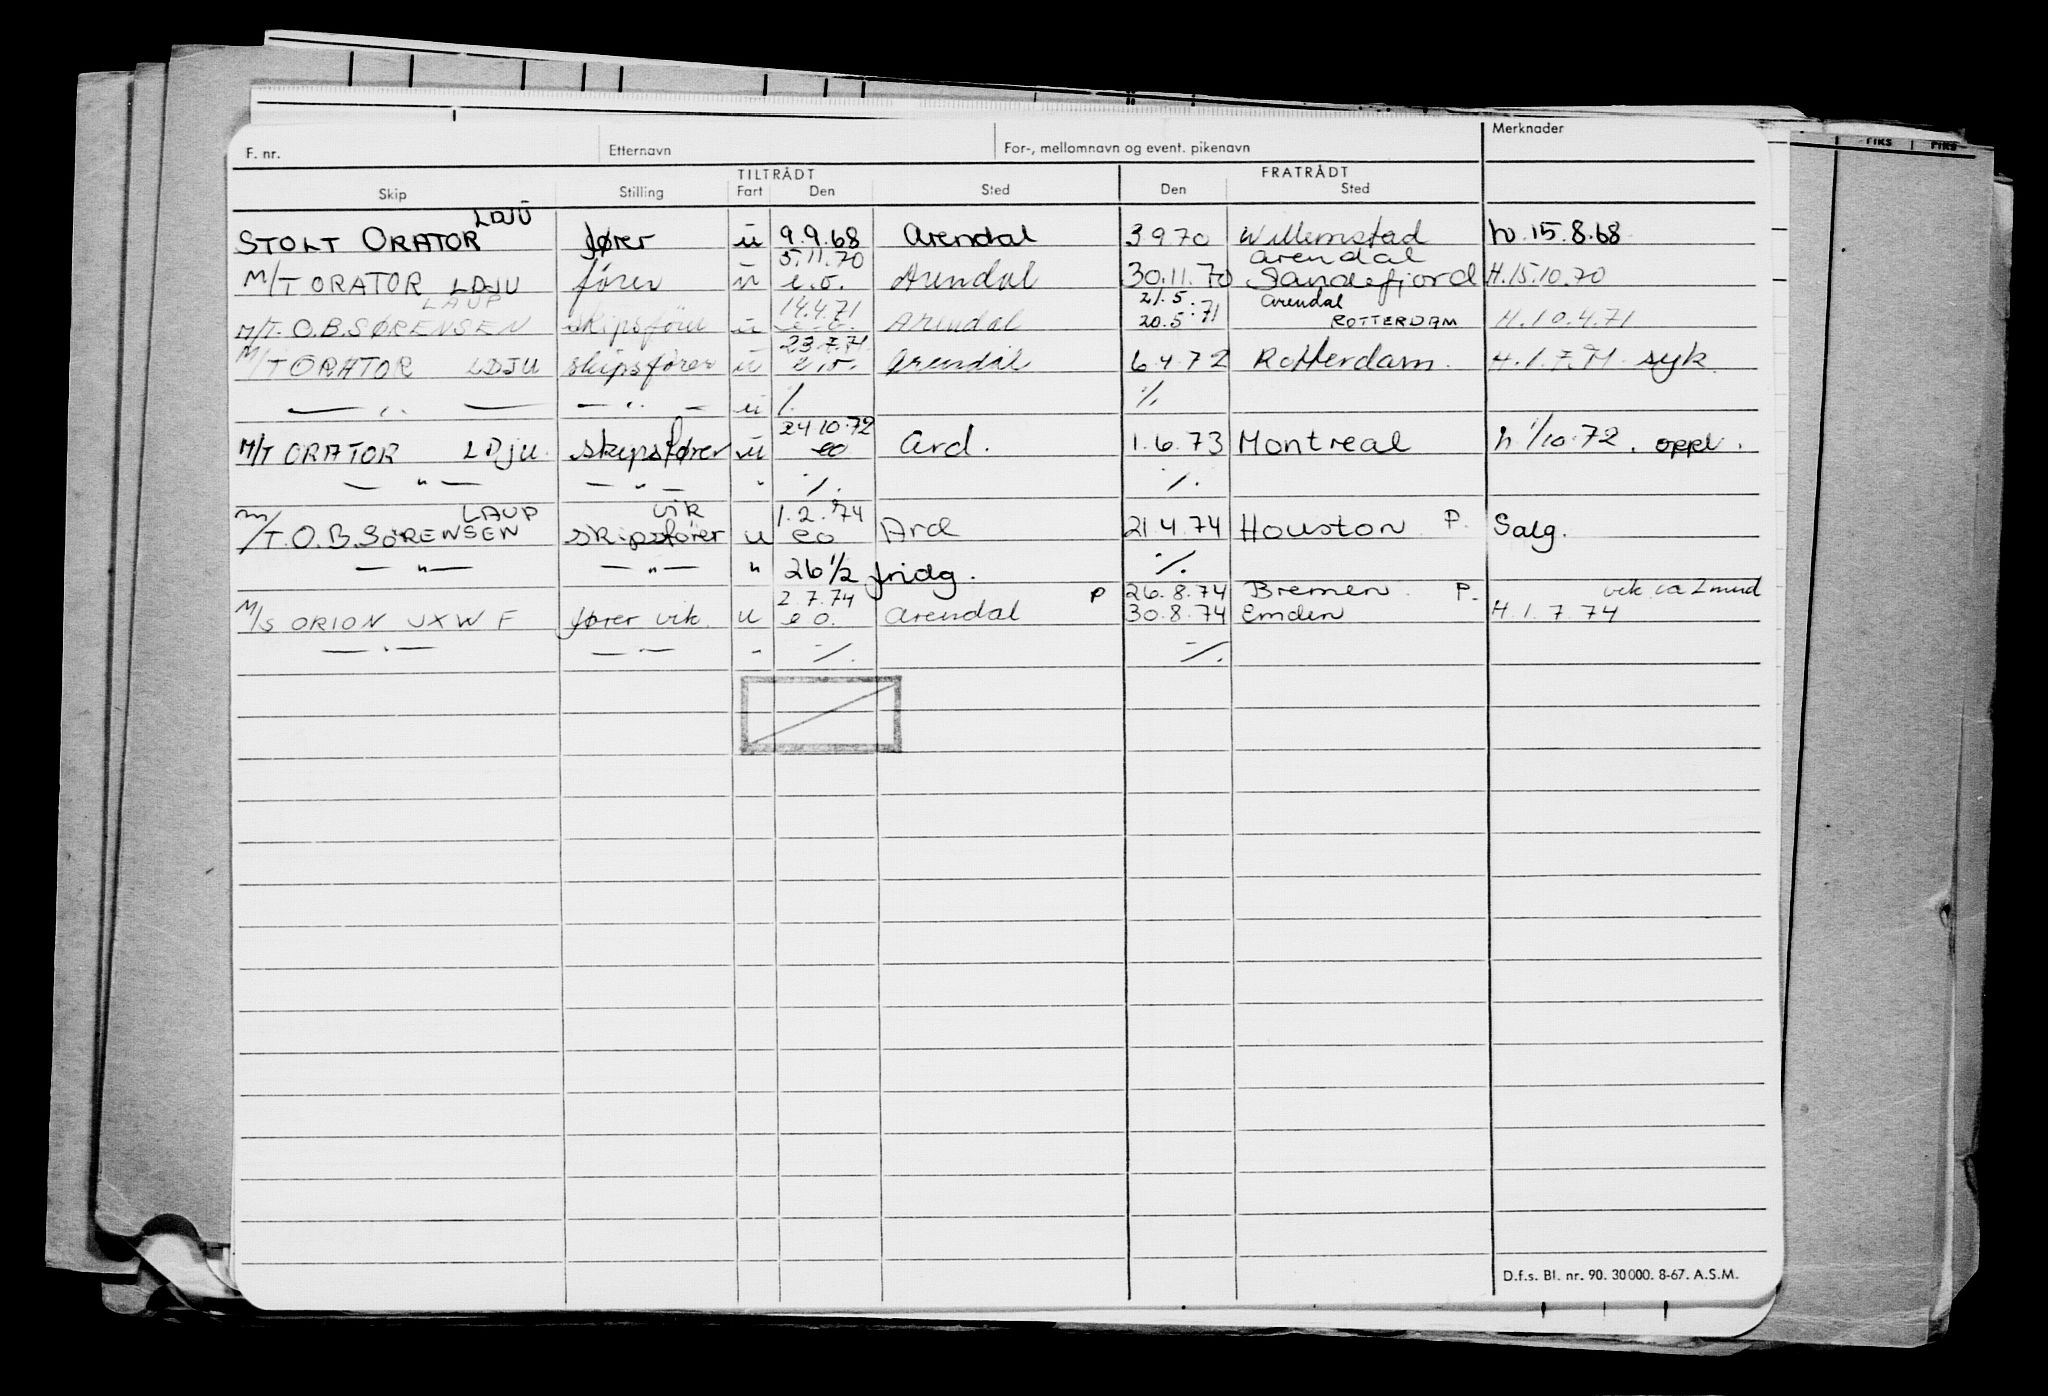 PIKS PIKS
F. nr. Etternavn For-, mellomnavn og event. pikenavn Merknader
TILTRÅDT FRATRÅDT
Skip Stilling Fart Den Sted Den Sted
LDJU
STOLT ORATOR fører u 9.9.68 Arendal 3 9 70 Willemstad h. 15.8.68
5.11.70 Arendal
M/T ORATOR LDJU fører u e.o. Arendal 30.11.70 Sandefjord H.15.10.70
LAUP 14.4.71 21.5. Arendal
M/T. O.B. SØRENSEN skipsfører u e.o. Arendal 20.5.71 ROTTERDAM H.10.4.71
23.7.71
M/T ORATOR LDJU skipsfører u e.o. Arendal 6.4.72 Rotterdam. H.1.7.71 syk.
— " — — " — u %. %.
24 10.72
M/T ORATOR LDJU. skipsfører u eo Ard. 1.6.73 Montreal h 1/10.72. oppl.
— " — — " — " %. %.
LAUP vik 1.2.74
m/T. O.B. SØRENSEN skipsfører u eo Ard 21 4.74 Houston P. Salg.
— " — — " — " 26 1/2 fridg. %.
2 7.74 P 26.8.74 Bremen. P. vik ca 2 mnd
M/S ORION JXWF fører vik. u e o. Arendal 30.8.74 Emden H.1.7.74
— " — — " — " %. %.
D.f.s. Bl. nr. 90. 30000. 8-67. A.S.M.